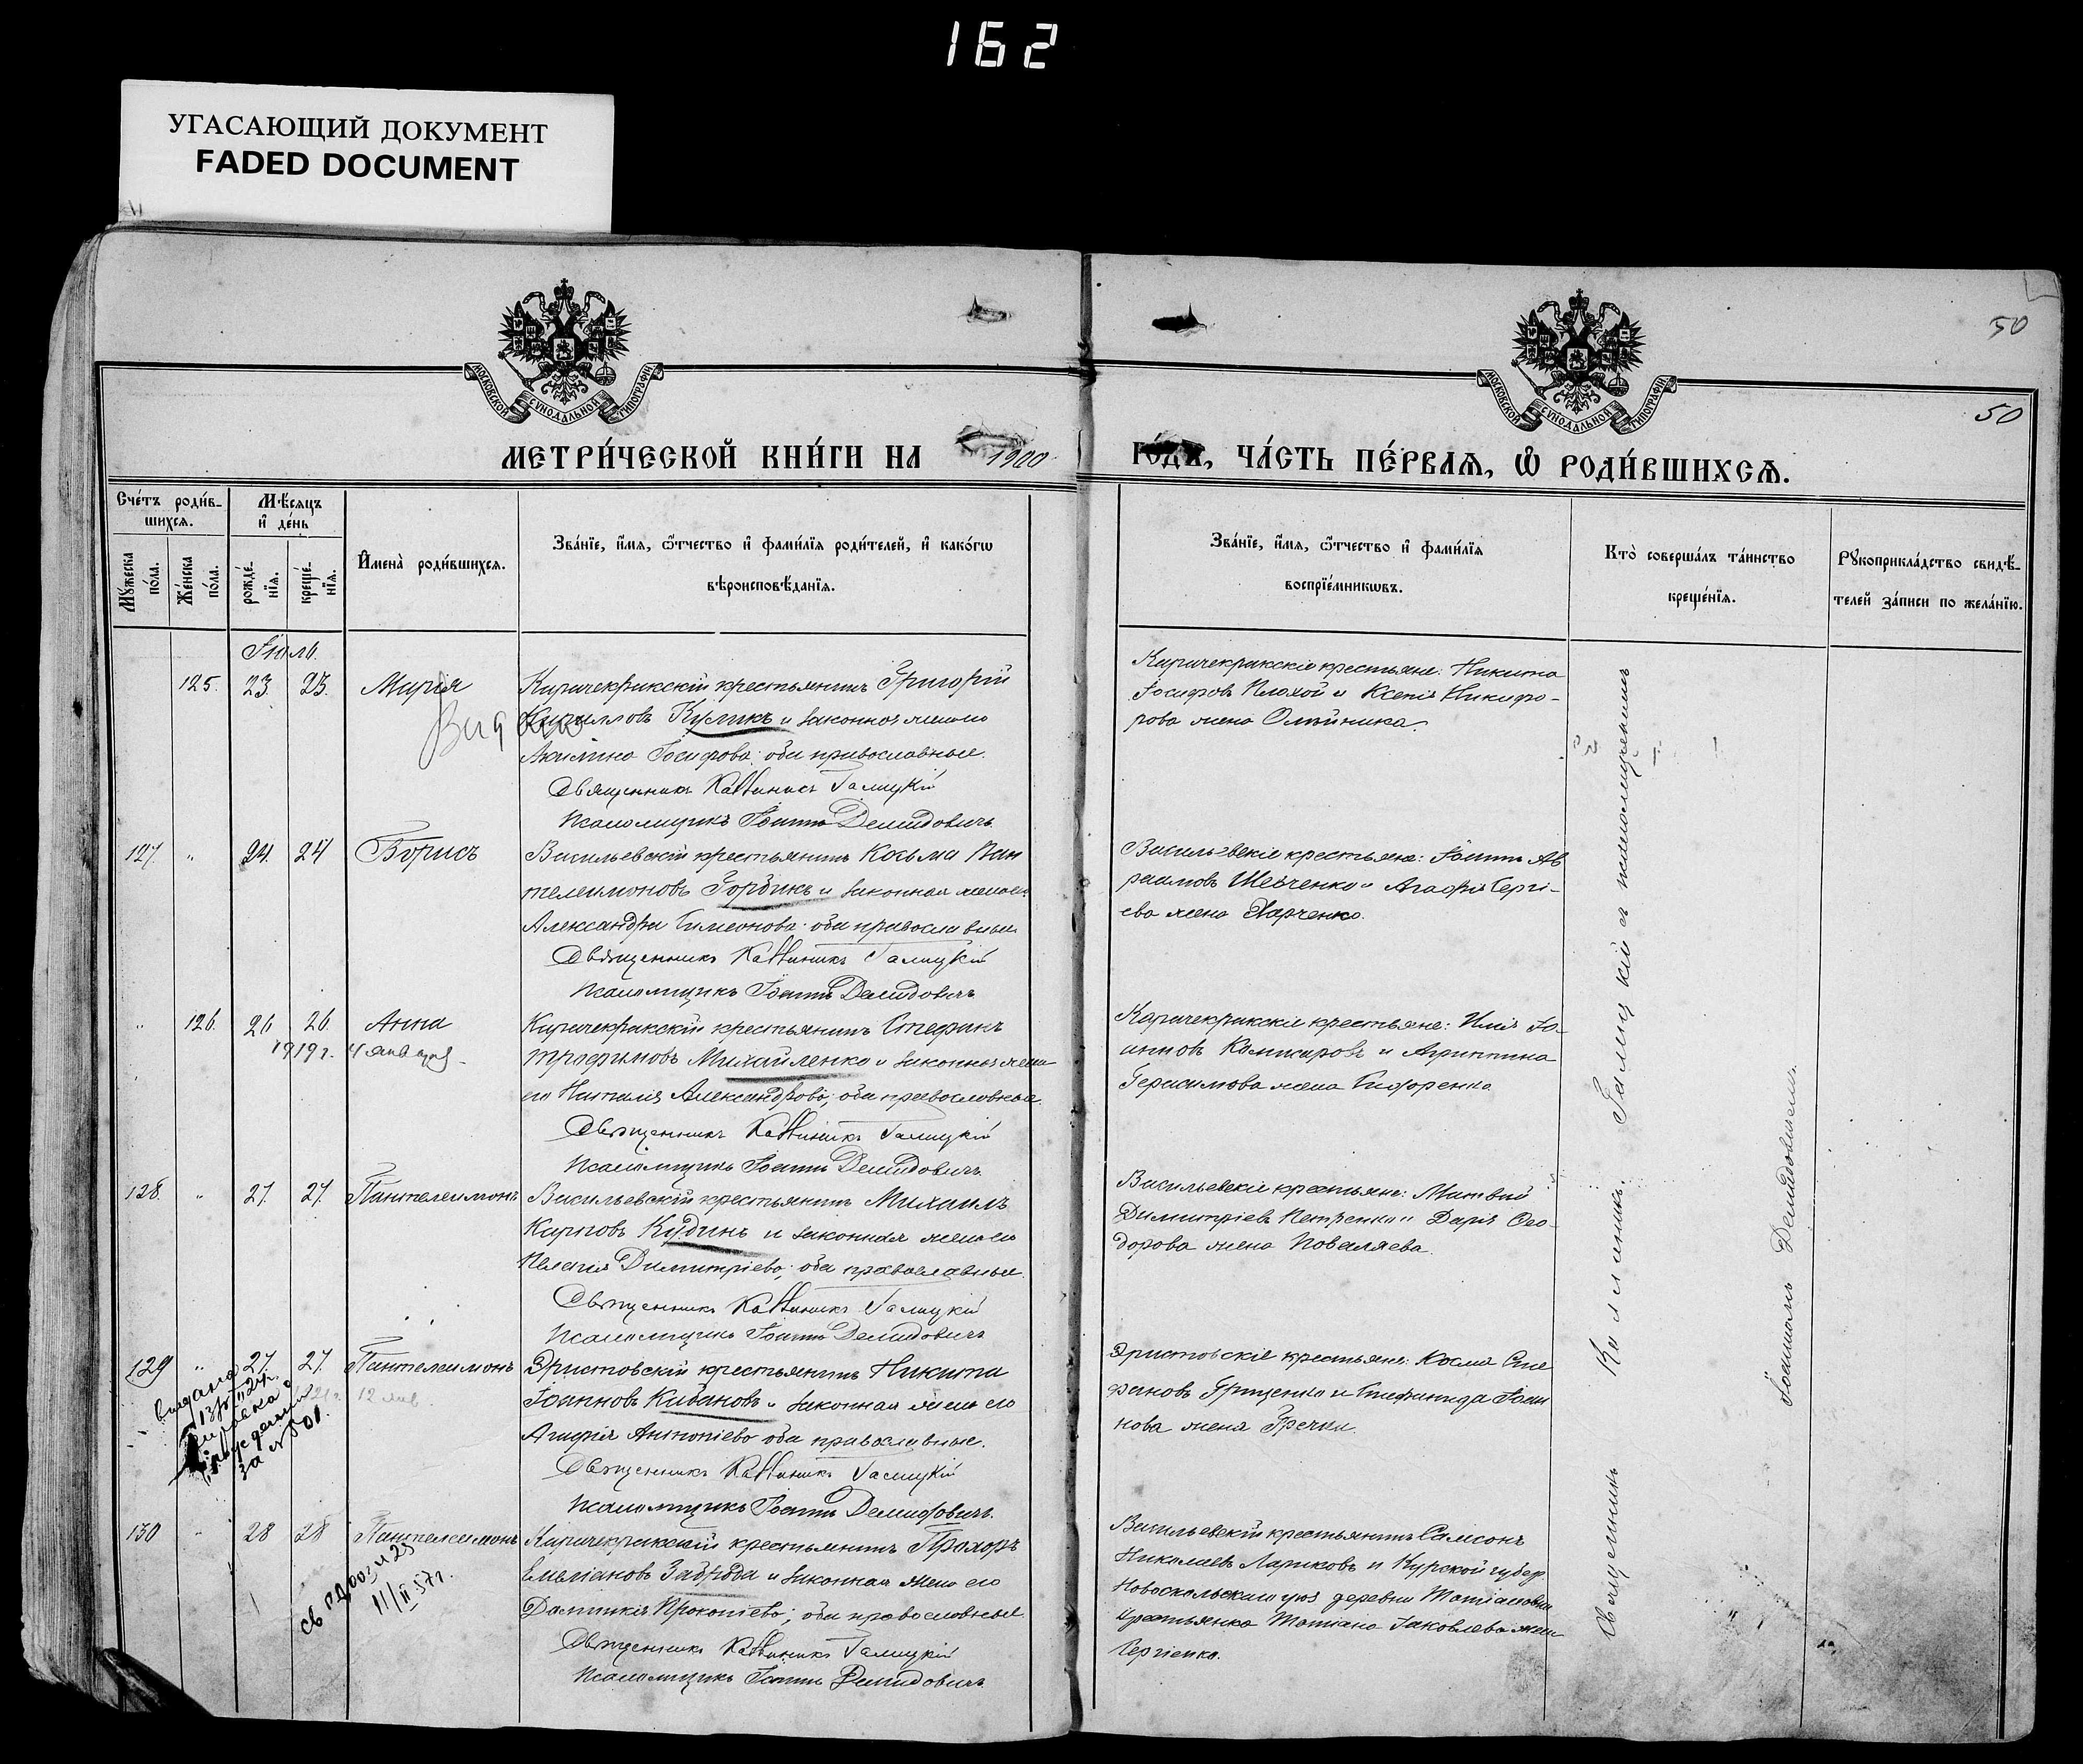 162
УГАСАЮЩИЙ ДОКУМЕНТ
FADED DOCUMENT
50
50
МОСКОВСКОЙ СУНОДАЛЬНОЙ ТИПОГРАФІИ
МОСКОВСКОЙ СУНОДАЛЬНОЙ ТИПОГРАФІИ
МЕТРИ́ЧЕСКОЙ КНИ́ГИ НА 1900 ГО́ДЪ, ЧА́СТЬ ПЕ́РВАѦ, Ѡ҆ РОДИ́ВШИХСѦ.
Сче́тъ роди́в-
шихсѧ.
Мѣ́сѧцъ
и҆ де́нь
Мꙋ́жеска
по́ла.
Же́нска
по́ла.
рожде́-
нїѧ.
креще́-
нїѧ.
И҆мена̀ роди́вшихсѧ.
Зва́нїе, и҆́мѧ, ѻ҆́тчество и҆ фами́лїѧ роди́телей, и҆ како́гѡ
вѣроисповѣ́данїѧ.
Зва́нїе, и҆́мѧ, ѻ҆́тчество и҆ фами́лїѧ
воспрїе́мникѡвъ.
Кто̀ соверша́лъ та́инство
креще́нїѧ.
Рꙋкоприкла́дство свидѣ́-
телей за́писи по жела́нїю.
Іюль.
125. 23 23. Марія
Видано
Карачекракскій крестьянинъ Григорій
Кирилловъ Куликъ и законная жена его
Акилина Іосифова: оба православные.
Священникъ Каллиникъ Галицкій
Псаломщикъ Іоаннъ Демидовичъ
Карачекракскіе крестьяне: Никита
Іосифовъ Плохой и Ксенія Никифо-
рова жена Олейника.
127. " 24. 24 Борисъ
Васильевскій крестьянинъ Косьма Пан
телеимоновъ Горбикъ и законная жена его
Александра Симеонова: оба православные.
Священникъ Каллиникъ Галицкій
Псаломщикъ Іоаннъ Демидовичъ
Васильевскіе крестьяне: Іоаннъ Ав
раамовъ Шевченко и Агафія Сергі-
ева жена Харченко.
" 126. 26 26. Анна
1919 г. 4 января
Карачекракскій крестьянинъ Стефанъ
Трофимовъ Михайленко и законная жена
его Наталія Александрова; оба православные.
Священникъ Каллиникъ Галицкій
Псаломщикъ Іоаннъ Демидовичъ
Карачекракскіе крестьяне: Илія Іо-
анновъ Комисаровъ и Агриппина
Герасимова жена Сидоренко
128. " 27. 27. Пантелеимонъ
Васильевскій крестьянинъ Михаилъ
Карповъ Кудинъ и законная жена его
Пелагія Димитріева; оба православные.
Священникъ Каллиникъ Галицкій
Псаломщикъ Іоаннъ Демидовичъ
Васильевскіе крестьяне: Матвей
Димитріевъ Петренко и Дарія Ѳео-
дорова жена Поваляева.
129 " 27. 27. Пантелеимонъ
12 янв
выдана
справка о
рождении
за № 501.
Эристовскій крестьянинъ Никита
Іоанновъ Кабановъ и законная жена его
Агафія Антоніева оба православные.
Священникъ Каллиникъ Галицкій
Псаломщикъ Іоаннъ Демидовичъ.
Эристовскіе крестьяне: Косма Сте
фановъ Гриценко и Стефанида Іоан
нова жена Гречки.
130 " 28 28 Пантелеимонъ
11/II 57 г.
Карачекракскій крестьянинъ Прохоръ
Емеліановъ Заброда и законная жена его
Домникія Прокопіева; оба православные
Священникъ Каллиникъ Галицкій
Псаломщикъ Іоаннъ Демидовичъ.
Васильевскій крестьянинъ Самсонъ
Николаевъ Лариковъ и Курской губер
Новоскольскаго уѣз деревни
крестьянка Татіана Іаковлева жена
Сергіенко.
Священникъ Каллиникъ Галицкій съ псаломщикомъ
Іоанномъ Демидовичемъ.